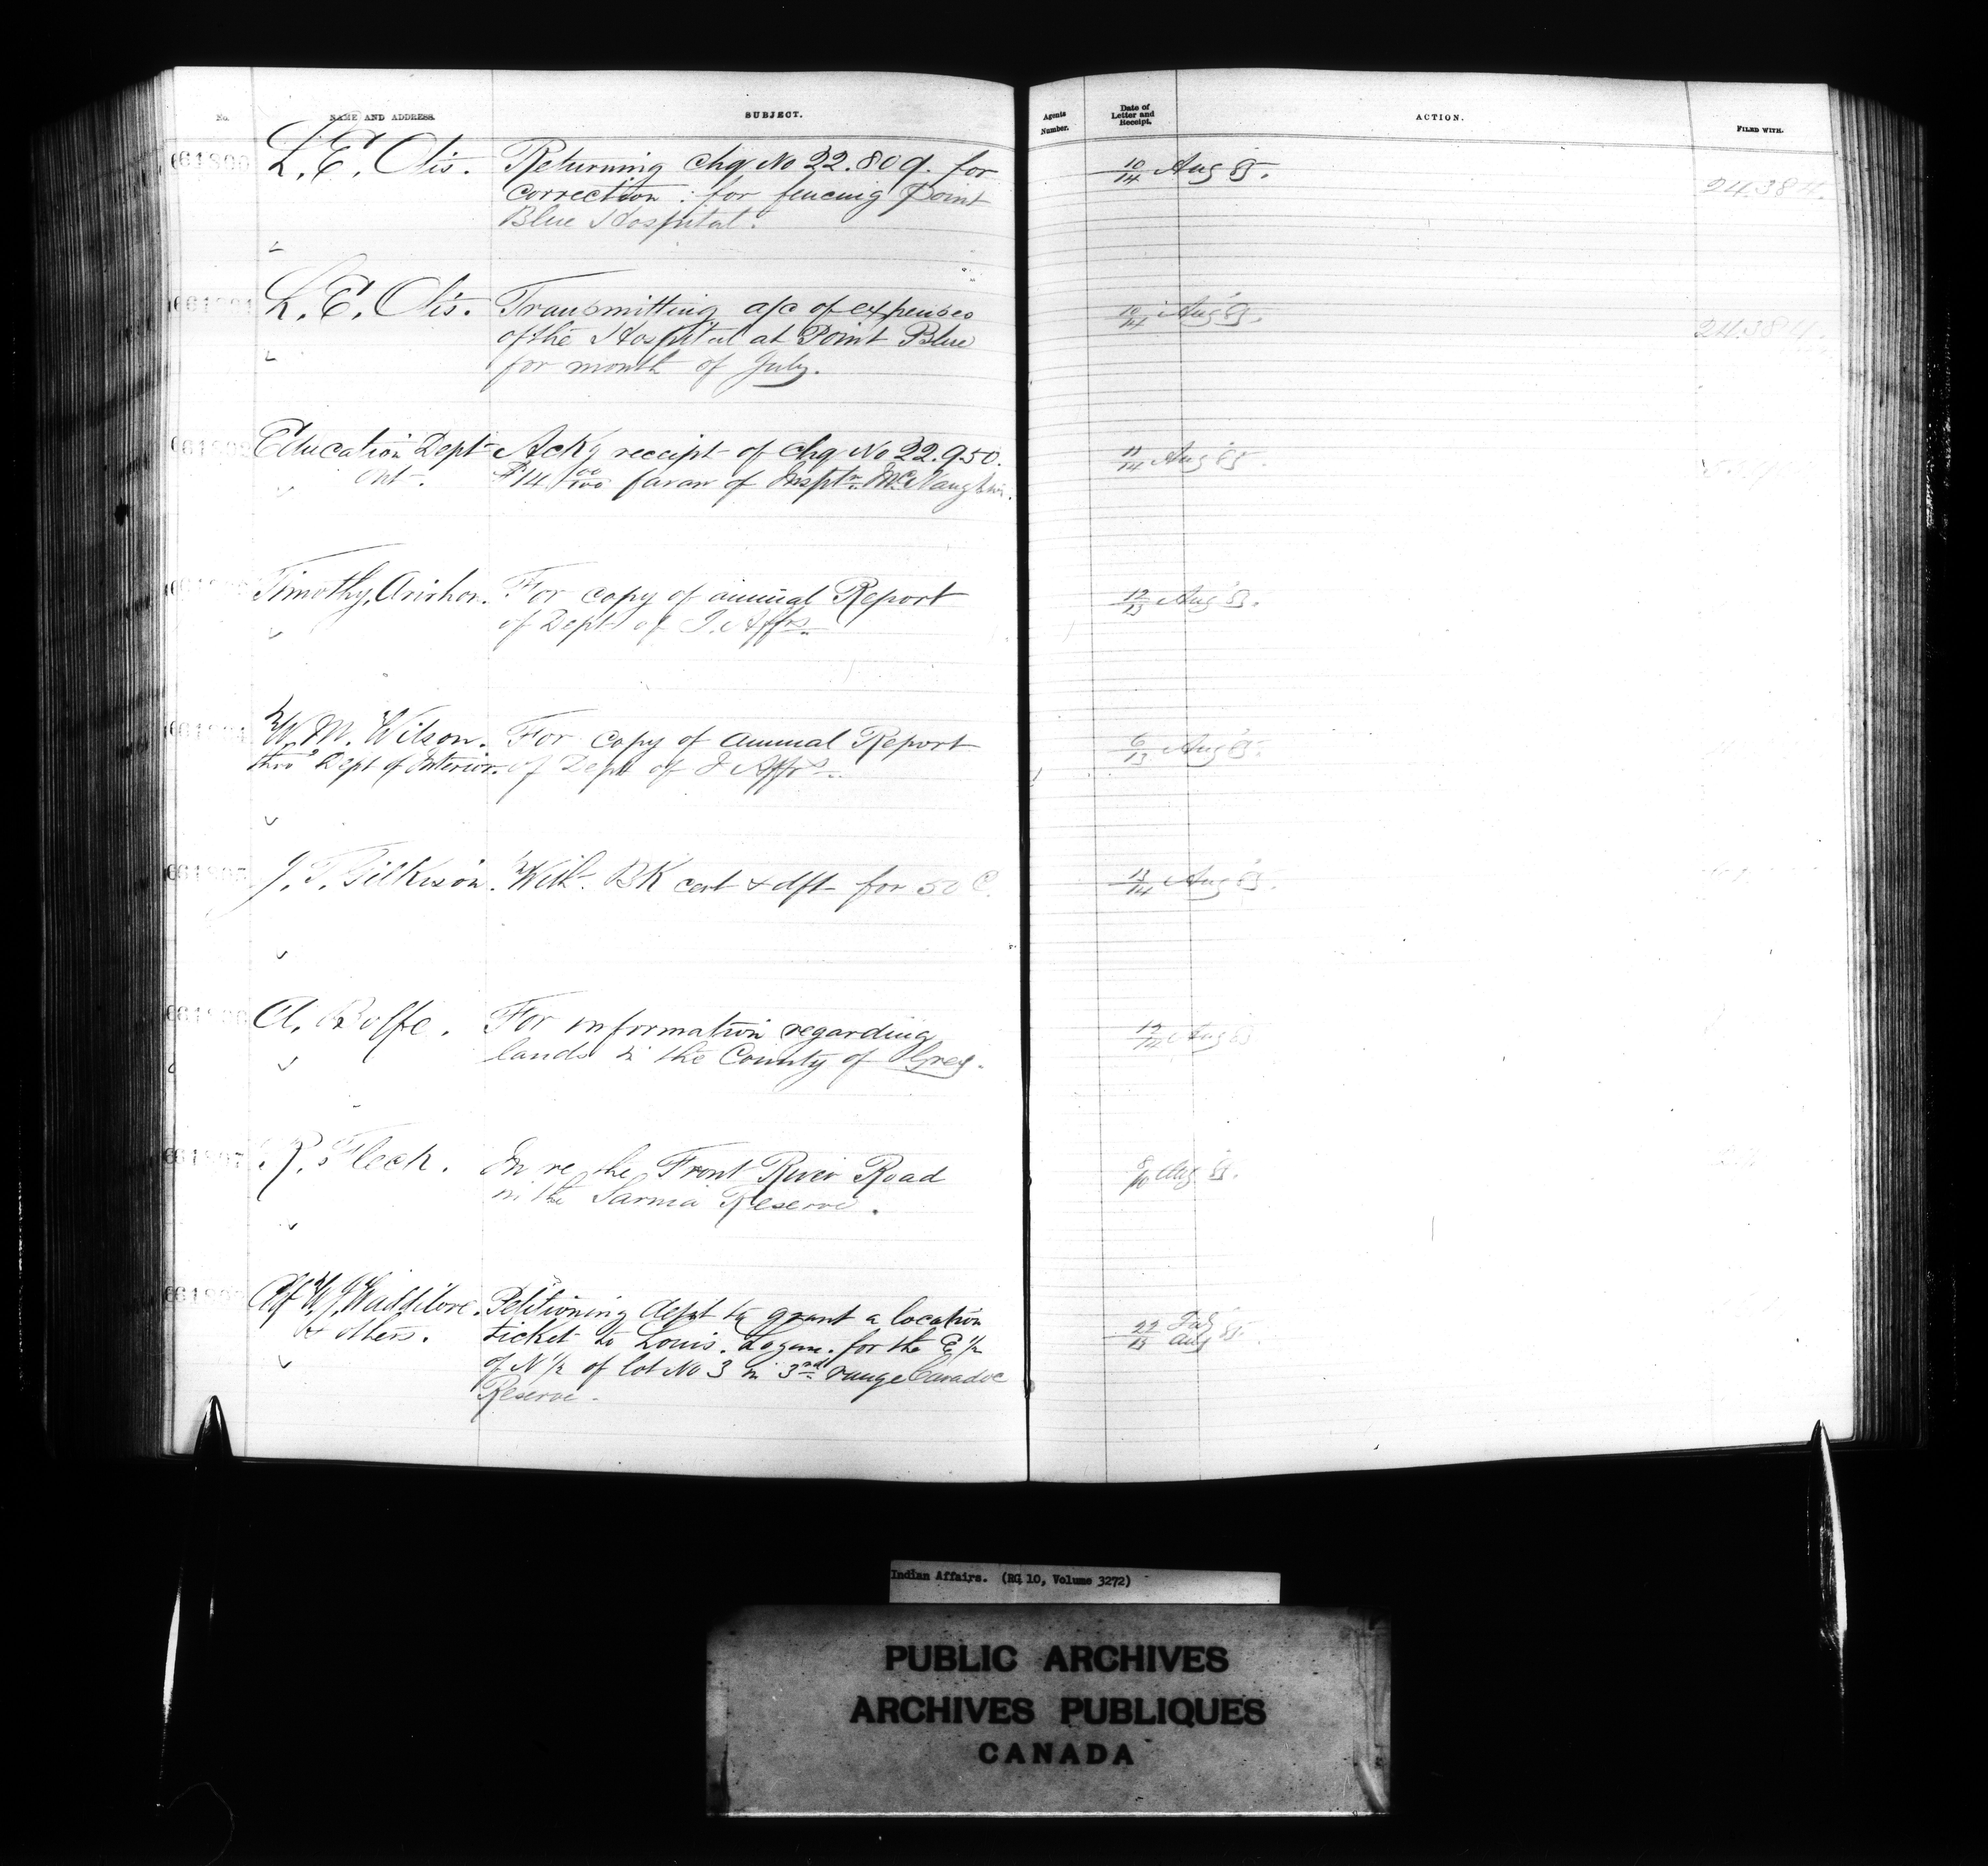 No.
NAME AND ADDRESS.
SUBJECT.
Agents Number.
Date of Letter and Receipt.
ACTION.
FILED WITH.
61200
L. E. Otis. Returning chq No 22.809. for
correction : for fencing Point
Blue Hospital.
10/14 Aug 85.
24.384.
61201
L. E. Otis. Transmitting a/c of expenses
of the Hospital at Point Blue
for month of July.
10/14 Aug 85.
24.384.
Education Dept Ackg receipt of chq No 22.950.
Ont. $14 00/100 favor of Insptr McNaughton.
11/14 Aug 85.
Timothy For copy of annual Report
of Dept of I. Affrs.
12/13 Aug 85.
W. M. Wilson. For copy of annual Report
thro' Dept of Interior. of Dept of I Affrs.
6/13 Aug 85.
J. T. Gilkison. With BK cert & dft for 50 C.
13/14 Aug 85.
A. Rolfe. For information regarding
lands in the County of Grey.
12/14 Aug 85
R. Fleck. In re the Front River Road
in the Sarnia Reserve.
8/10 Aug 85.
Chf W. J. Waddilove. Petitioning dept to grant a location
& others. ticket to Louis. Logan. for the E 1/2
of N 1/2 of lot No 3 in 3rd range Caradoc
Reserve.
22/13 July Aug 85.
Indian Affairs. (RG 10, Volume 3272)
PUBLIC ARCHIVES
ARCHIVES PUBLIQUES
CANADA